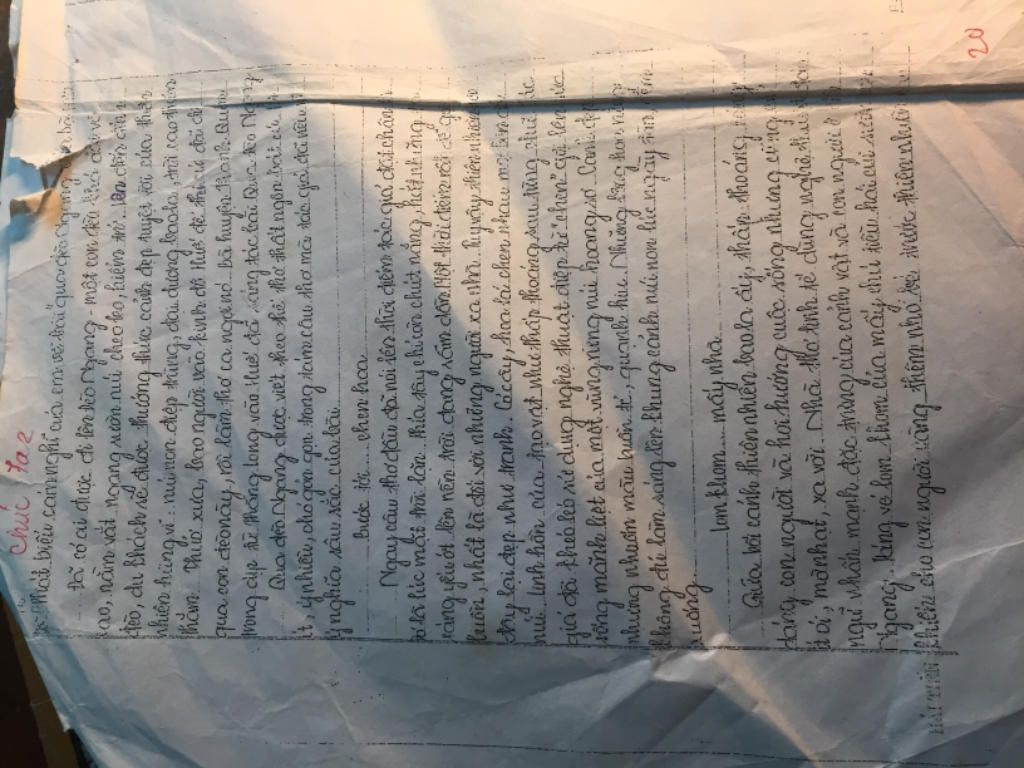 Chúc 7a2
Phát biểu cảm nghĩ của em về bài qua đèo Ngang
Đã có ai được đi lên đèo Ngang - một con đèo khá dài và
cao, nằm vắt ngang sườn núi cheo leo, hiểm trở. lên đến đỉnh
đèo, du khách sẽ được thưởng thức cảnh đẹp tuyệt vời của thiên
nhiên hùng vĩ: núi non điệp trùng, đại dương bao la, trời cao thăm
thẳm. Thuở xưa, bao người vào kinh đô Huế để thi cử đã đi
qua con đèo này, rồi làm thơ ca ngợi nó. bà huyện Thanh Quan
trong dịp từ Thăng Long vào Huế đã sáng tác bài Qua đèo Ngang
Qua đèo Ngang được viết theo thể thơ thất ngôn bát cú
ít, ý nhiều, chỉ gói gọn trong tám câu thơ mà tác giả đã nêu
ý nghĩa sâu sắc của bài
Bước tới... chen hoa
Ngay câu thơ đầu đã nói lên thời điểm tác giả đặt chân
đó là lúc mặt trời lặn phía tây chỉ còn chút nắng, hắt những
vàng yếu ớt lên nền trời đang sẫm dần. Một thời điểm rất dễ gợi
buồn, nhất là đối với những người xa nhà. tuy vậy, thiên nhiên
đây lại đẹp như tranh. Cỏ cây, hoa lá chen nhau mọc lên
núi. linh hồn của tạo vật như thấp thoáng sau từng
quá đỗi khéo léo sử dụng nghệ thuật điệp từ "chen" gợi lên sức
sống mãnh liệt của một vùng rừng núi hoang sơ. Cảnh đẹp
nhưng nhuốm màu buồn tẻ, quạnh hiu. Những tia nắng
không đủ làm sáng lên khung cảnh núi non lúc ngày tàn, đêm
xuống
lom khom... mấy nhà.
Giữa bối cảnh thiên nhiên bao la ấy, thấp thoáng
dáng con người và hơi hướng cuộc sống nhưng cũng
lẻ loi, mờ nhạt, xa vời. Nhà thơ tinh tế dùng nghệ thuật đảo
ngữ nhấn mạnh đặc trưng của cảnh vật và con người ở
Ngang. Dáng vẻ lom khom của mấy chú tiều hái củi sườn non
khiến cho con người càng thêm nhỏ bé trước thiên nhiên
HẢI TIẾN
20